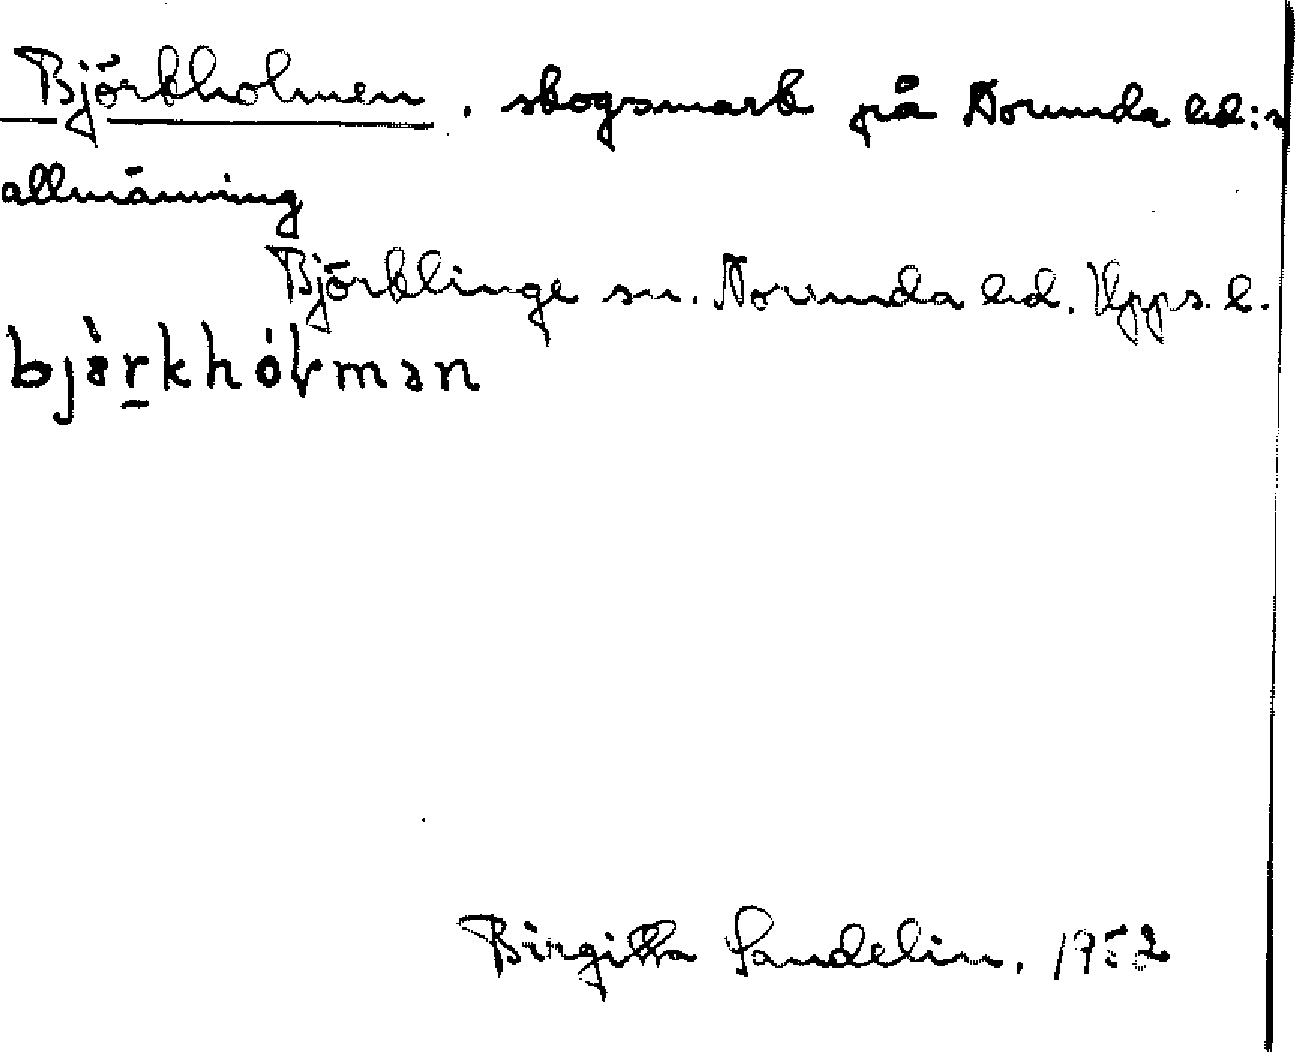 Björkholmen, skogsmark på Norunda hd:s
allmänning
Björklinge sn. Norunda hd. Upps. l.
Birgitta Sandelin. 1952